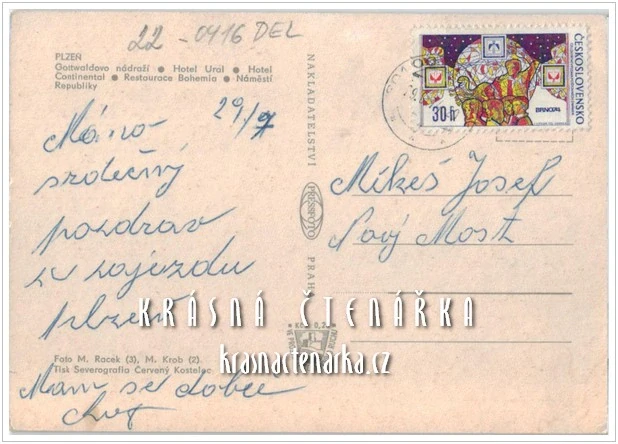 22 -0416 DEL
PLZEŇ
Gottwaldovo nádraží ● Hotel Ural ● Hotel
Continental ● Restaurace Bohemia ● Náměstí
Republiky
29/7
srdečný
pozdrav
zájezdu
plzeň
Foto M. Racek (3), M. Krob (2).
Tisk Severografia Červený Kostelec
Mám se dobře
NAKLADATELSTVÍ
PRESSFOTO
PRAHA
ČESKOSLOVENSKO
BRNO1974
30 h
Mikeš Josef
Nový Most
KRÁSNÁ ČTENÁŘKA
krasnactenarka.cz